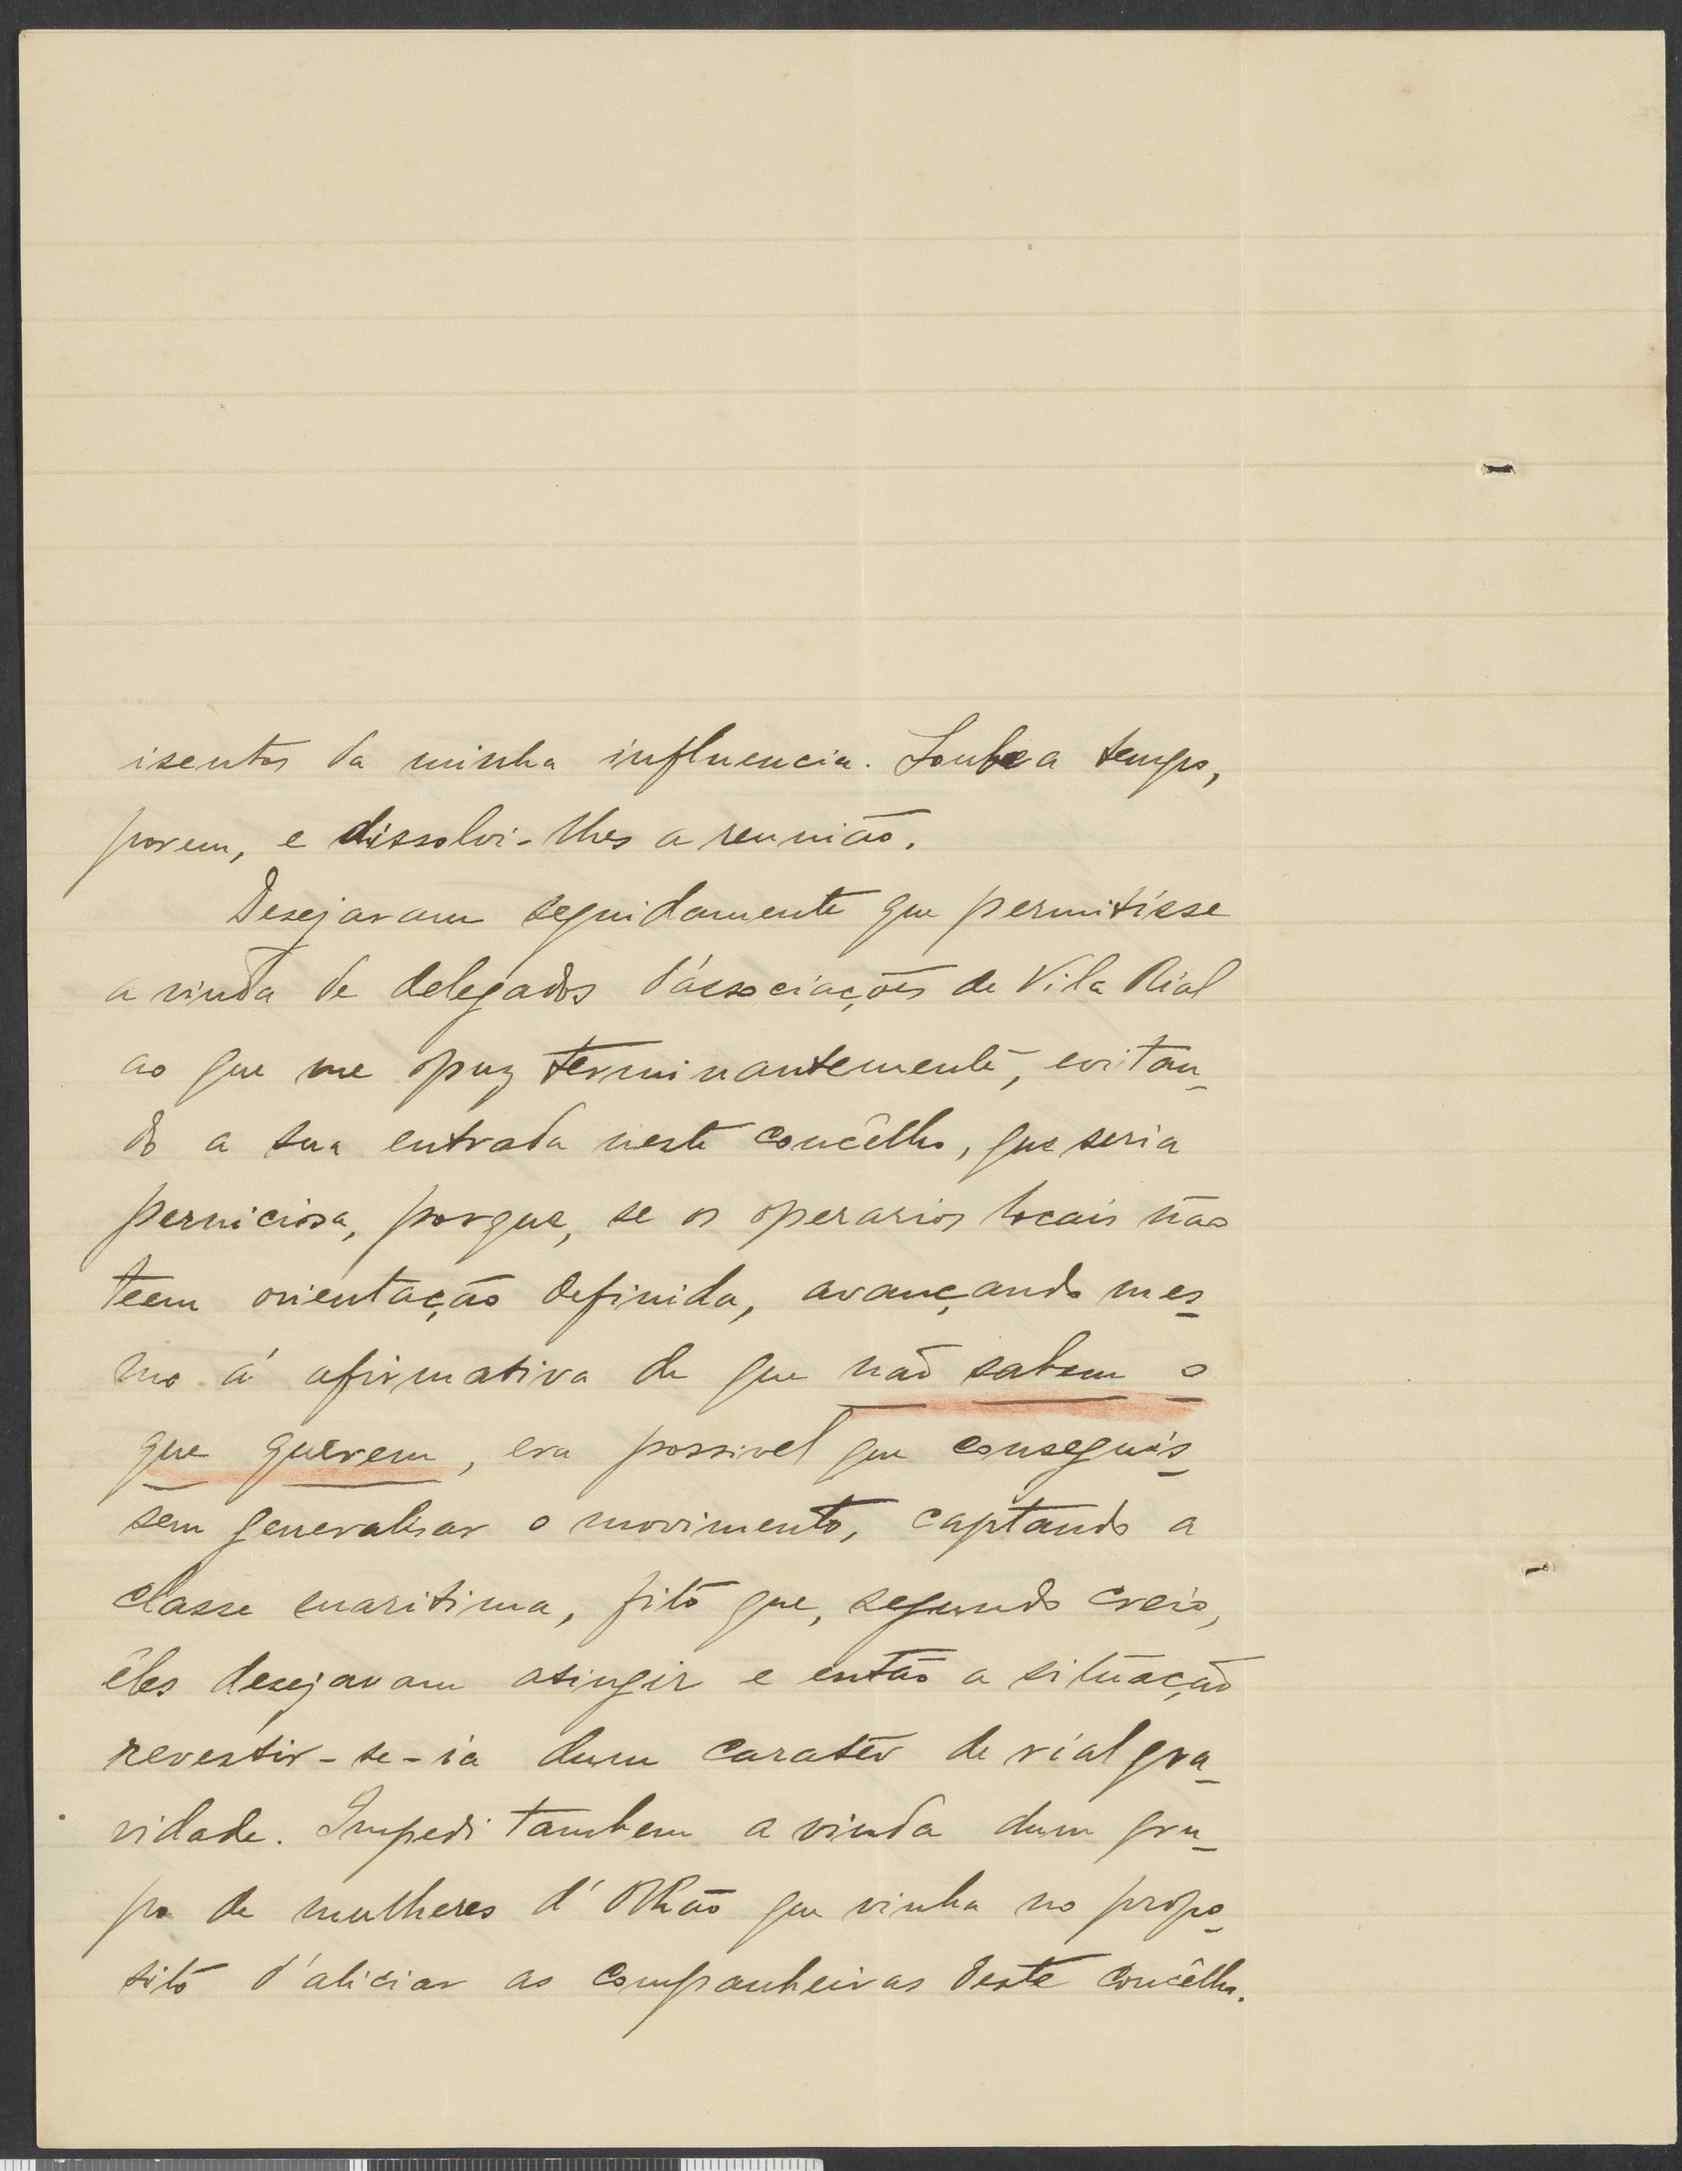 isentos da minha influencia. Soube a tempo,
porem, e dissolvi-lhes a reunião.
Desejavam seguidamente que permitisse
a vinda de delegados d'associações de Vila Rial
ao que me opuz terminantemente, evitan-
do a sua entrada neste concêlho, que seria
perniciosa, porque, se os operarios locais não
teem orientação definida, avançando mes-
mo á afirmativa de que não sabem o
que querem, era possivel que conseguis-
sem generalisar o movimento, captando a
classe maritima, fito que, segundo creio,
êles desejavam atingir e então a situação
revestir-se-ia dum caratér de rial gra-
vidade. Impedi tambem a vinda dum gru-
po de mulheres d'Olhão que vinha no propo-
sito d'aliciar as companheiras deste concêlho.